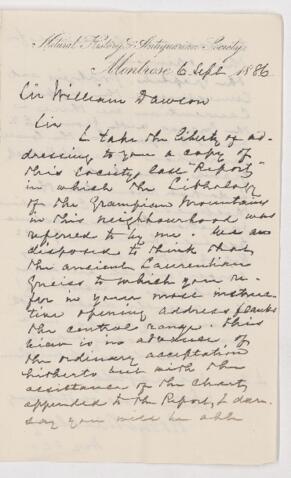 Natural History & Antiquarian Society,
Montrose 6 Sept 1886
Sir William Dawson
Sir
I take the liberty of ad-
dressing to you a copy of
this Society last "Report"
in which the Lithology
of the Grampian Mountains
in this neighbourhood was
referred to by me. We are
disposed to think that
the ancient Laurentian
Gneiss to which you re-
fer in your most instruc-
tive opening address flanks
the central range. This
view is in advance of
the ordinary acceptation
hitherto but with the
assistance of the Chart
appended to the Report, I dare
say you will be able